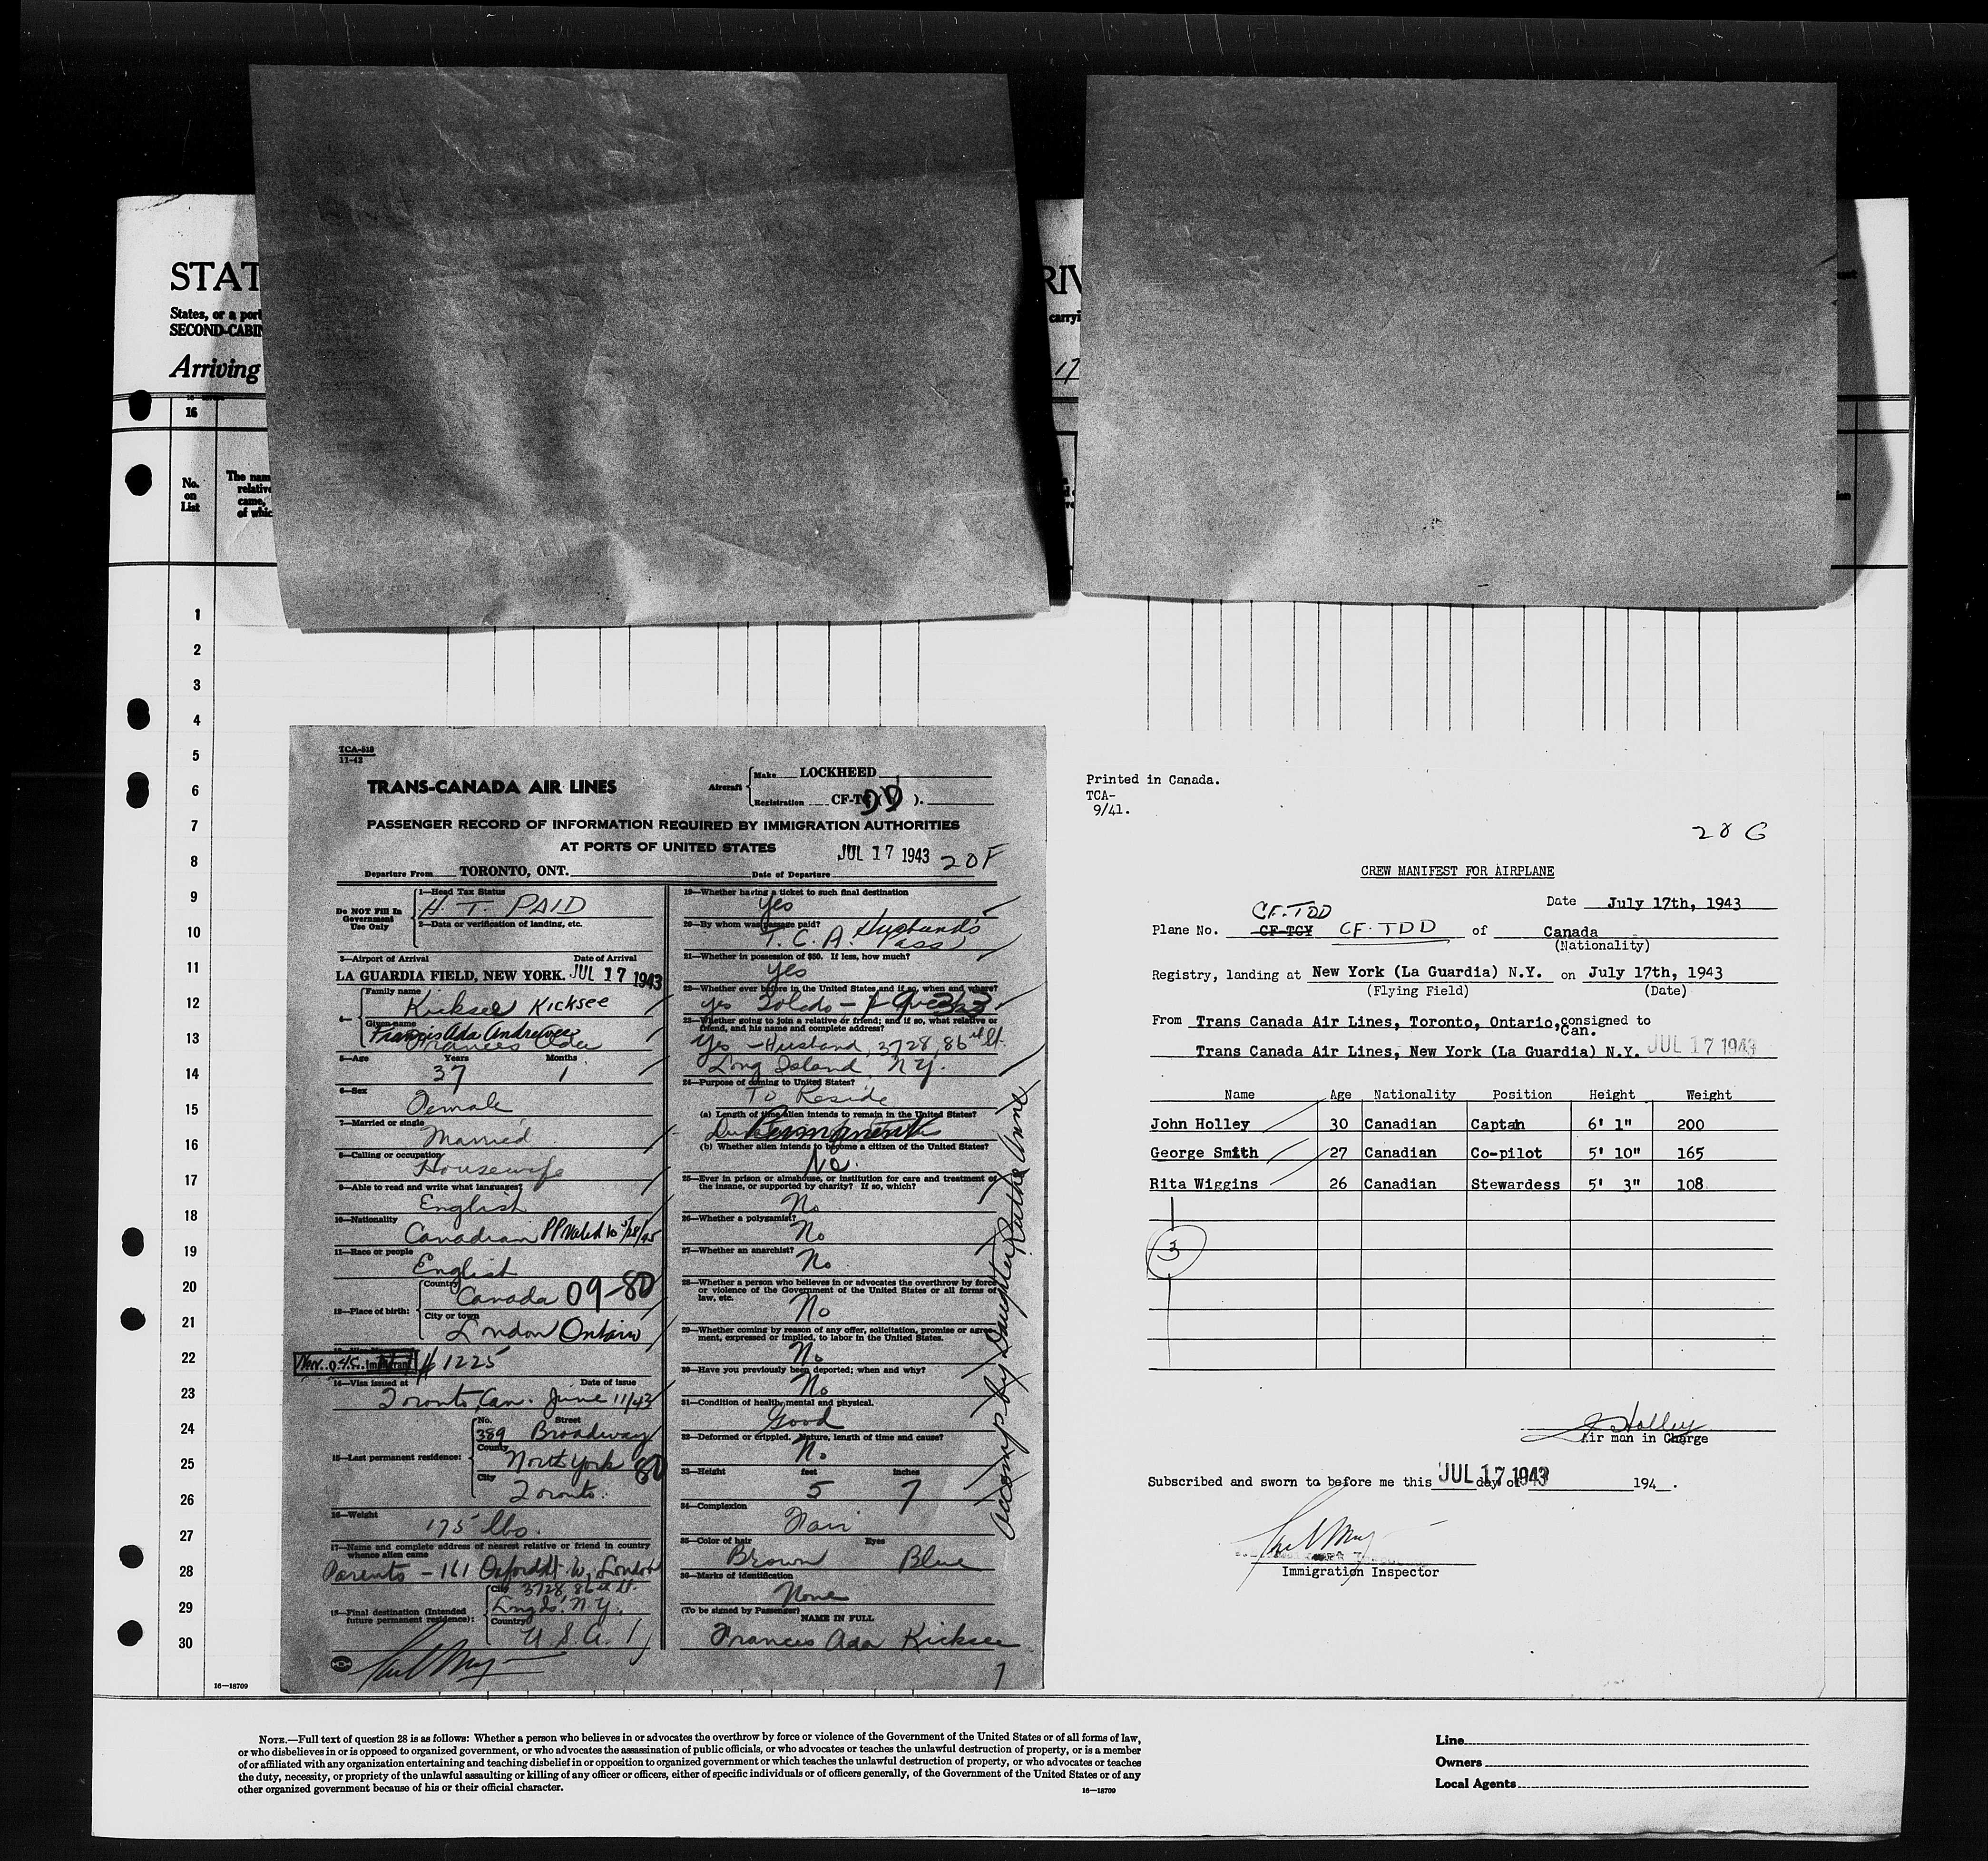 STAT
RIV
States, or a port
carryi
SECOND-CABIN
Arriving
17
16
No. on List
The nam
relative
came,
of whic
1
2
3
4
5
6
7
8
9
10
11
12
13
14
15
16
17
18
19
20
21
22
23
24
25
26
27
28
29
30
16—18709
TCA-518
11-42
TRANS-CANADA AIR LINES
Aircraft
Make LOCKHEED
Registration CF-T DD ( ).
PASSENGER RECORD OF INFORMATION REQUIRED BY IMMIGRATION AUTHORITIES
AT PORTS OF UNITED STATES
JUL 17 1943 20F
Departure From TORONTO, ONT. Date of Departure
Do NOT Fill In Government Use Only
1—Head Tax Status
H. T. PAID
2—Data or verification of landing, etc.
3—Airport of Arrival Date of Arrival
LA GUARDIA FIELD, NEW YORK. JUL 17 1943
4—
Family name
Kicksee Kicksee
Given name
Francis Ada Andrewes
Frances Ada
5—Age Years Months
37 1
6—Sex
Female
7—Married or single
Married
8—Calling or occupation
Housewife
9—Able to read and write what languages?
English
10—Nationality
Canadian PP valid to 5/28/45
11—Race or people
English
12—Place of birth:
Country
Canada 09-80
City or town
London Ontario
Immigrant # 1225
14—Visa issued at Date of issue
Toronto, Can. June 11/43
15—Last permanent residence:
No. Street
389 Broadway
County
North York 80
City
Toronto.
16—Weight
175 lbs.
17—Name and complete address of nearest relative or friend in country
whence alien came
Parents - 161 Oxford St. W, London
18—Final destination (Intended
future permanent residence):
City 3728, 86th St.
Long Is. N.Y.
Country
U.S.A.
19—Whether having a ticket to such final destination
Yes
20—By whom was passage paid?
T.C.A. Husband's Pass
21—Whether in possession of $50. If less, how much?
Yes
22—Whether ever before in the United States and if so, when and where?
Yes Toledo -
23—Whether going to join a relative or friend; and if so, what relative or
friend, and his name and complete address?
Yes - Husband, 3728, 86th St.
Long Island, N.Y.
24—Purpose of coming to United States?
To Reside
(a) Length of time alien intends to remain in the United States?
Permanently
(b) Whether alien intends to become a citizen of the United States?
No.
25—Ever in prison or almshouse, or institution for care and treatment of
the insane, or supported by charity? If so, which?
No
26—Whether a polygamist?
No
27—Whether an anarchist?
No
28—Whether a person who believes in or advocates the overthrow by force
or violence of the Government of the United States or all forms of
law, etc.
No
29—Whether coming by reason of any offer, solicitation, promise or agree-
ment, expressed or implied, to labor in the United States.
No
30—Have you previously been deported; when and why?
No
31—Condition of health, mental and physical.
Good
32—Deformed or crippled. Nature, length of time and cause?
No
33—Height feet inches
5 7
34—Complexion
Fair
35—Color of hair Eyes
Brown Blue
36—Marks of identification
None
(To be signed by Passenger) NAME IN FULL
Frances Ada Kicksee
Accomp by Daughter Ruth Anne
Printed in Canada.
TCA-
9/41.
20 G
CREW MANIFEST FOR AIRPLANE
Date July 17th, 1943
CF-TDD
Plane No. CF-TCY CF-TDD of Canada
(Nationality)
Registry, landing at New York (La Guardia) N.Y. on July 17th, 1943
(Flying Field) (Date)
From Trans Canada Air Lines, Toronto, Ontario, Can. consigned to
Trans Canada Air Lines, New York (La Guardia) N.Y. JUL 17 1943
Name Age Nationality Position Height Weight
John Holley 30 Canadian Captan 6' 1" 200
George Smith 27 Canadian Co-pilot 5' 10" 165
Rita Wiggins 26 Canadian Stewardess 5' 3" 108
3
J Holley
Air man in Charge
Subscribed and sworn to before me this JUL 17 1943 day of 194 .
Immigration Inspector
NOTE.—Full text of question 28 is as follows: Whether a person who believes in or advocates the overthrow by force or violence of the Government of the United States or of all forms of law,
or who disbelieves in or is opposed to organized government, or who advocates the assassination of public officials, or who advocates or teaches the unlawful destruction of property, or is a member
of or affiliated with any organization entertaining and teaching disbelief in or opposition to organized government or which teaches the unlawful destruction of property, or who advocates or teaches
the duty, necessity, or propriety of the unlawful assaulting or killing of any officer or officers, either of specific individuals or of officers generally, of the Government of the United States or of any
other organized government because of his or their official character.
16—18709
Line
Owners
Local Agents